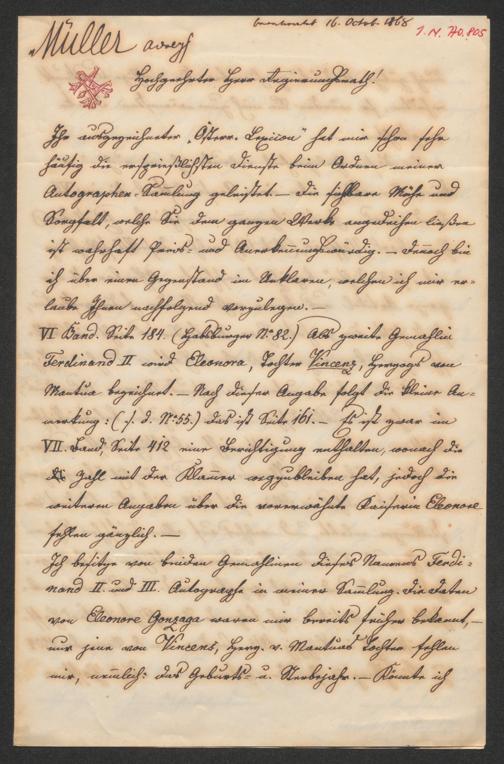 Müller Adolf
beantwortet 16. Octob. 1868
I. N. 70.805
Hochgeehrter Herr Regierungsrath!
Ihr ausgezeichneter „Österr. Lexicon" hat mir schon sehr
häufig die ersprießlichsten Dienste beim Ordnen meiner
Autographen-Sammlung geleistet. — Die fühlbare Mühe und
Sorgfalt, welche Sie dem ganzen Werke angedeihen ließen
ist wahrhaft Preis- und Anerkennungswürdig. — Dennoch bin
ich über einen Gegenstand im Unklaren, welchen ich mir er-
laube Ihnen nachfolgend vorzulegen. —
VI Band. Seite 184. (Habsburger No 82.) Als zweite Gemahlin
Ferdinand II wird Eleonora, Tochter Vincenz, Herzogs von
Mantua bezeichnet. — Nach dieser Angabe folgt die kleine An-
merkung: (s. d. No 55.) das ist Seite 161. — Es ist zwar im
VII. Band, Seite 412 eine Berichtigung enthalten, wonach die
Zahl mit der Klamer wegzubleiben hat, jedoch die
weiteren Angaben über die vorerwähnte Kaiserin Eleonore
fehlen gänzlich. —
Ich besitze von beiden Gemahlinen dieses Namens Ferdi-
nand II. und III. Autographe in meiner Sammlung. Die Daten
von Eleonore Gonzaga waren mir bereits früher bekannt, —
nur jene von Vincens, Herz. v. Mantuas Tochter fehlen
mir, nemlich: das Geburts- u. Sterbejahr. — Könnte ich